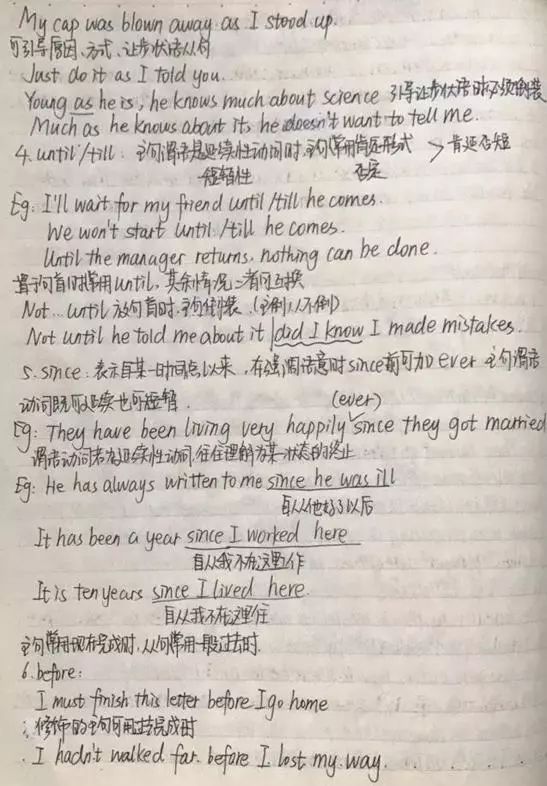 My cap was blown away as I stood up.
可引导原因、方式、让步状语从句
Just do it as I told you.
Young as he is, he knows much about science 引导让步状语时必须倒装
Much as he knows about it, he doesn't want to tell me.
4. until/till: 主句谓语是延续性动词时,主句常用肯定形式 → 肯延否短
短暂性 否定
Eg: I'll wait for my friend until/till he comes.
We won't start until/till he comes.
Until the manager returns, nothing can be done.
置于句首时常用until, 其余情况二者可互换
Not...until放句首时,主句倒装.(主倒从不倒)
Not until he told me about it did I know I made mistakes.
5. since: 表示自某一时间点以来,在强调语意时since前可加ever 主句谓语
动词既可延续也可短暂.
(ever)
Eg: They have been living very happily since they got married
谓语动词若为延续性动词,往往理解为某一状态的终止
Eg: He has always written to me since he was ill
自从他好了以后
It has been a year since I worked here
自从我不在这里工作
It is ten years since I lived here.
自从我不在这里住
主句常用现在完成时,从句常用一般过去时.
6. before:
I must finish this letter before I go home
修饰的主句可用过去完成时
I hadn't walked far before I lost my way.